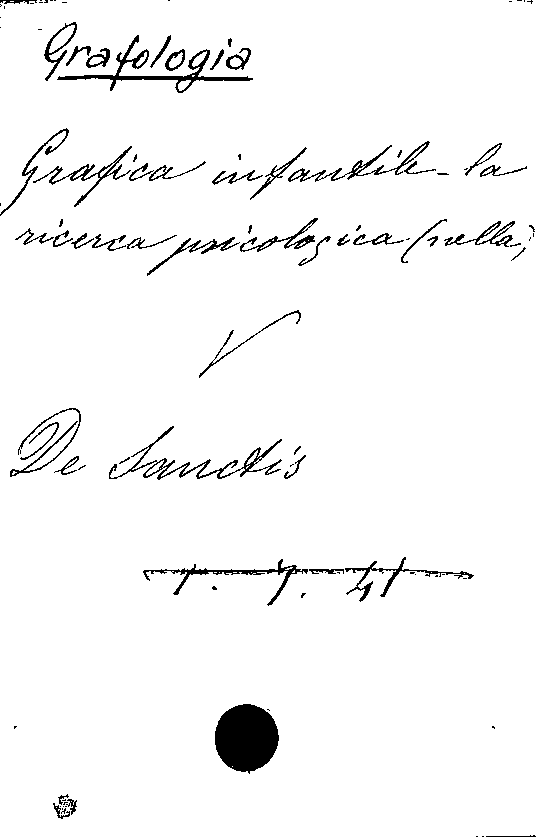 Grafologia
Grafica infantile - la
ricerca psicologica (nella)
V
De Sanctis
1. 7. 41